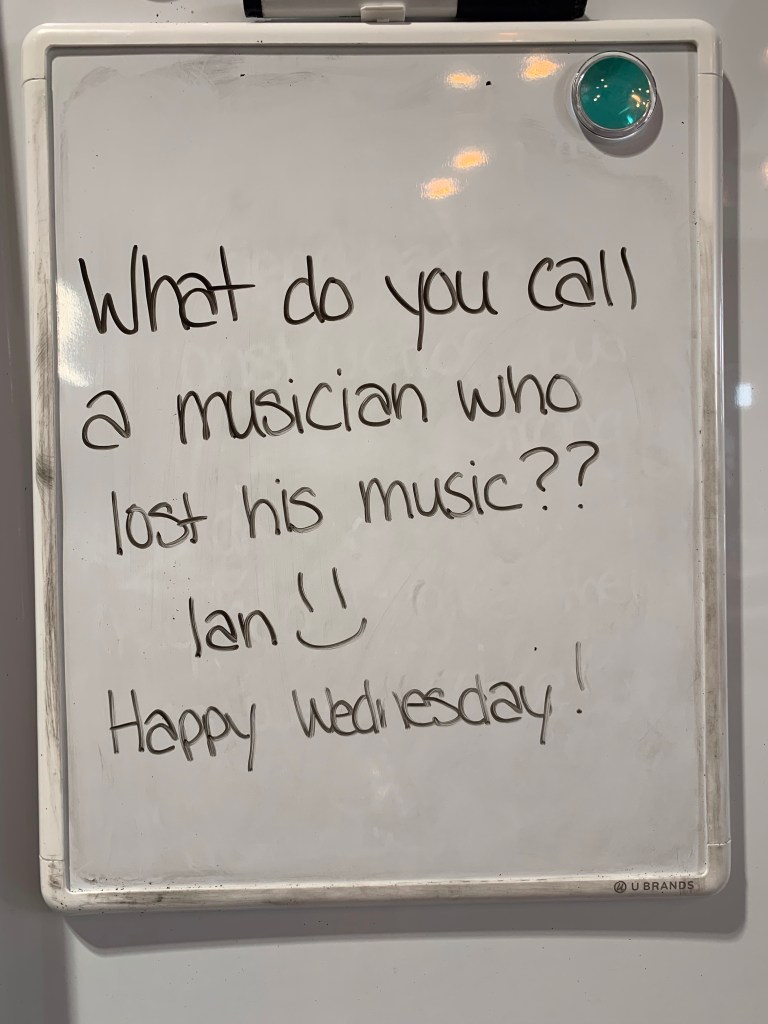 What do you call
a musician who
lost his music??
Ian
Happy Wednesday!
U BRANDS